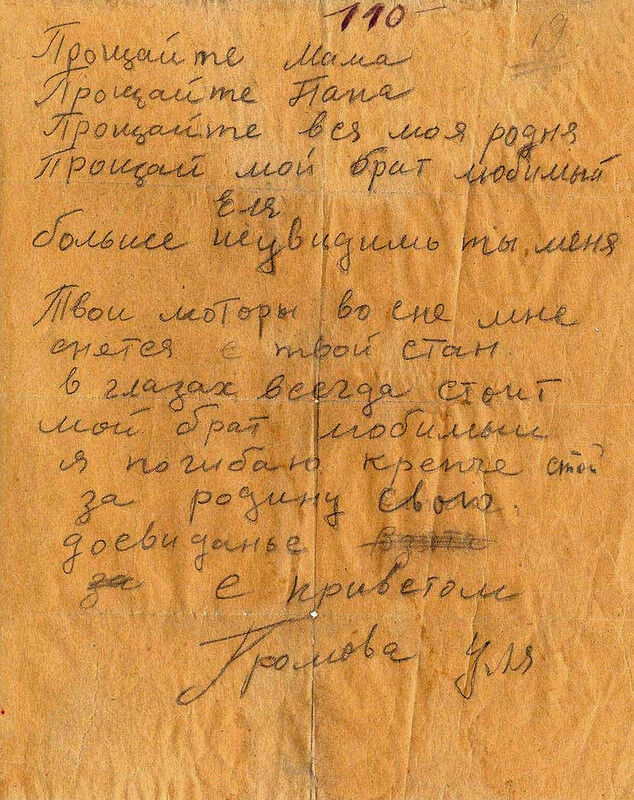 110
19
Прощайте Мама
Прощайте Папа
Прощайте вся моя родня
Прощай мой брат любимый
Еля
больше неувидишь ты меня
Твои моторы во сне мне
снятся є твой стан
в глазах всегда стоит
мой брат любимыи
я погибаю крепче стой
за родину свою.
досвиданье
за
С приветом
Громова Уля